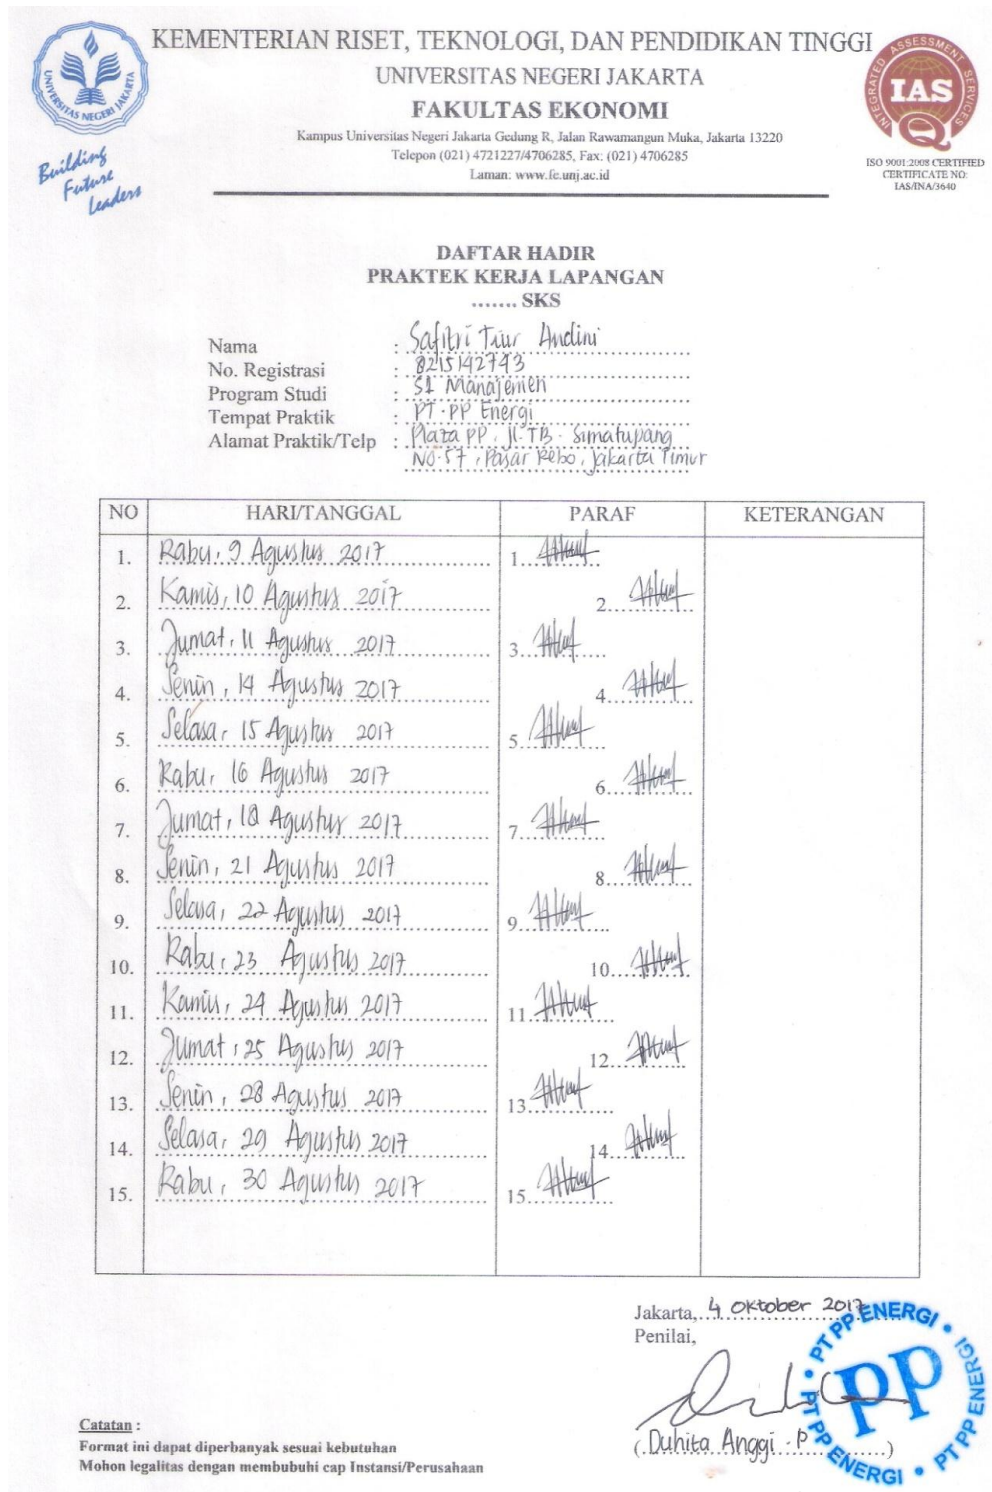 KEMENTERIAN RISET, TEKNOLOGI, DAN PENDIDIKAN TINGGI
UNIVERSITAS NEGERI JAKARTA
FAKULTAS EKONOMI
Kampus Universitas Negeri Jakarta Gedung R, Jalan Rawamangun Muka, Jakarta 13220
Telepon (021) 4721227/4706285, Fax: (021) 4706285
Laman: www.fe.unj.ac.id
UNIVERSITAS NEGERI JAKARTA
Building
Future
Leaders
INTEGRATED ASSESSMENT SERVICES
IAS
ISO 9001:2008 CERTIFIED
CERTIFICATE NO:
IAS/INA/3640
DAFTAR HADIR
PRAKTEK KERJA LAPANGAN
....... SKS
Nama : Safitri Tiur Andini
No. Registrasi : 8215142743
Program Studi : S1 Manajemen
Tempat Praktik : PT. PP Energi
Alamat Praktik/Telp : Plaza PP, Jl. TB. Simatupang
No. 57, Pasar Rebo, Jakarta Timur
NO HARI/TANGGAL PARAF KETERANGAN
1. Rabu, 9 Agustus 2017 1.
2. Kamis, 10 Agustus 2017 2.
3. Jumat, 11 Agustus 2017 3.
4. Senin, 14 Agustus 2017 4.
5. Selasa, 15 Agustus 2017 5.
6. Rabu, 16 Agustus 2017 6.
7. Jumat, 18 Agustus 2017 7.
8. Senin, 21 Agustus 2017 8.
9. Selasa, 22 Agustus 2017 9.
10. Rabu, 23 Agustus 2017 10.
11. Kamis, 24 Agustus 2017 11.
12. Jumat, 25 Agustus 2017 12.
13. Senin, 28 Agustus 2017 13.
14. Selasa, 29 Agustus 2017 14.
15. Rabu, 30 Agustus 2017 15.
Jakarta, 4 Oktober 2017
Penilai,
PT PP ENERGI • PT PP ENERGI • PT PP ENERGI •
PP
( Duhita Anggi . P )
Catatan :
Format ini dapat diperbanyak sesuai kebutuhan
Mohon legalitas dengan membubuhi cap Instansi/Perusahaan